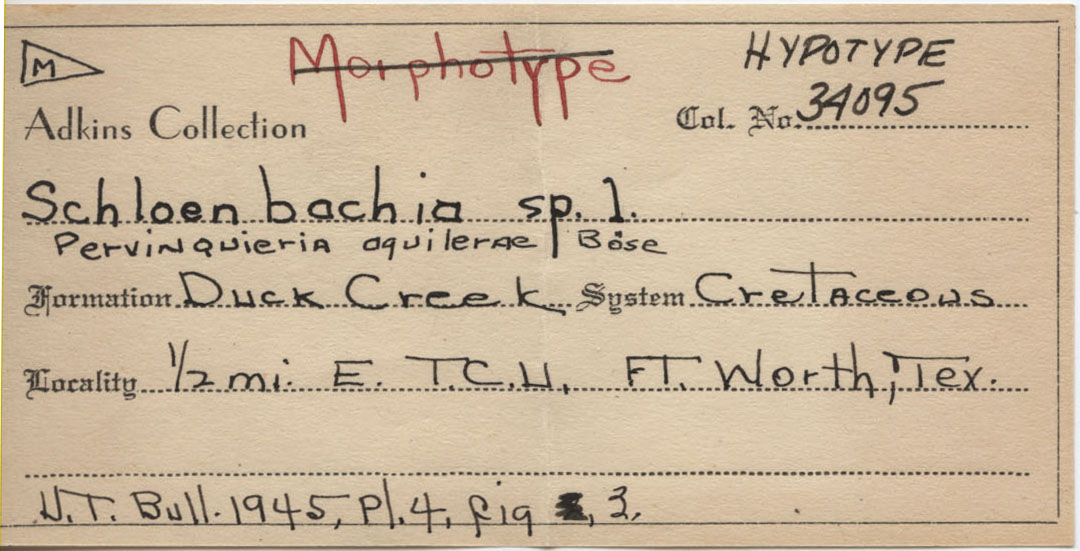 M Morphotype HYPOTYPE
Adkins Collection Col. No. 34095
Schloenbachia sp. 1.
Pervinquieria aguilerae Böse
Formation Duck Creek System Cretaceous
Locality 1/2 mi. E. T.C.U. Ft. Worth, Tex.
U.T. Bull. 1945, Pl. 4, fig , 3.